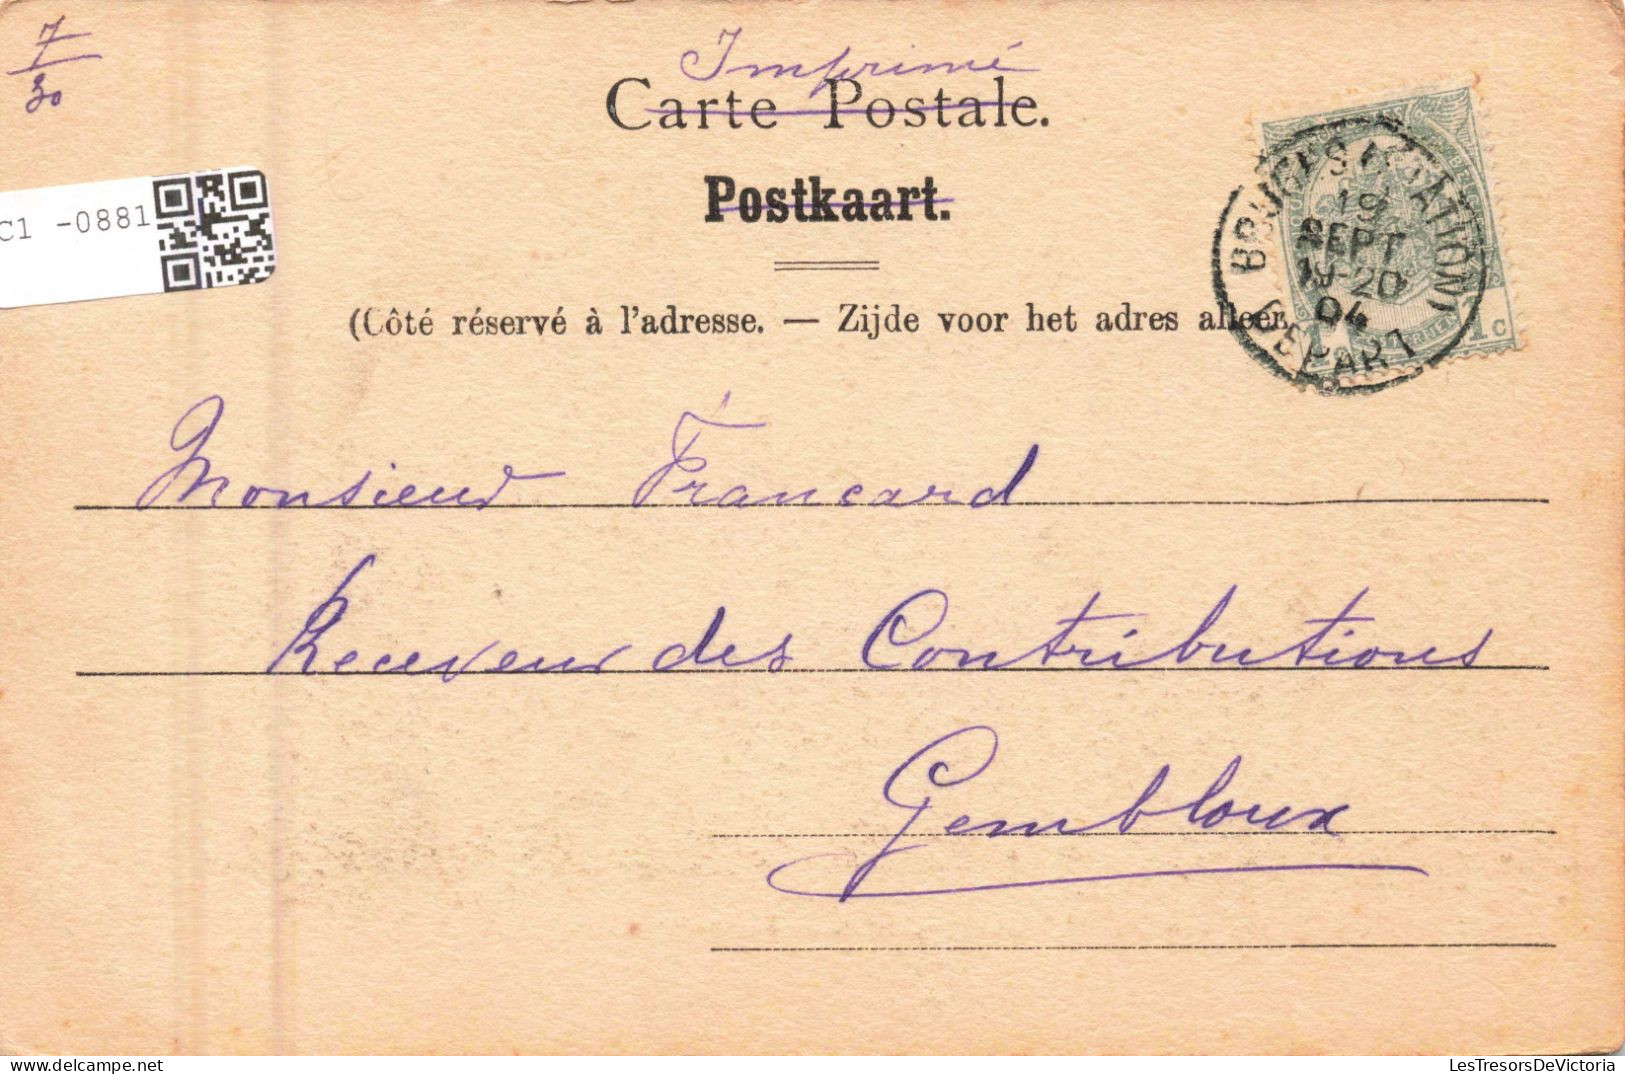 7
30
Imprimé
Carte Postale.
Postkaart.
C1 -0881
(Côté réservé à l'adresse. — Zijde voor het adres alleen.
BRUGES (STATION)
19
SEPT
19-20
04
DEPART
1c
Monsieur Francard
Receveur des Contributions
Gembloux
LesTresorsDeVictoria